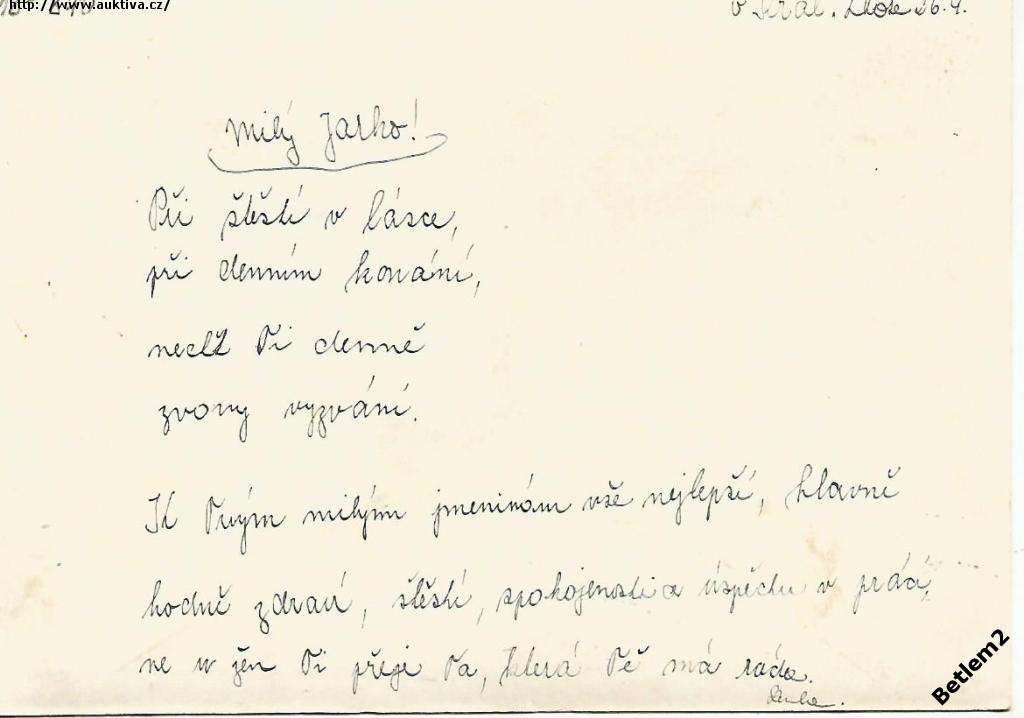 http://www.auktiva.cz/
v Král. Lhotě 26.4.
Milý Jarko!
Při štěstí v lásce,
při denním konání,
nechť Ti denně
zvony vyzvání.
K Tvým milým jmeninám vše nejlepší, hlavně
hodně zdraví, štěstí, spokojenosti a úspěchu v práci,
Ti přeje Ta, která Tě má ráda.
Lenka.
Betlem2